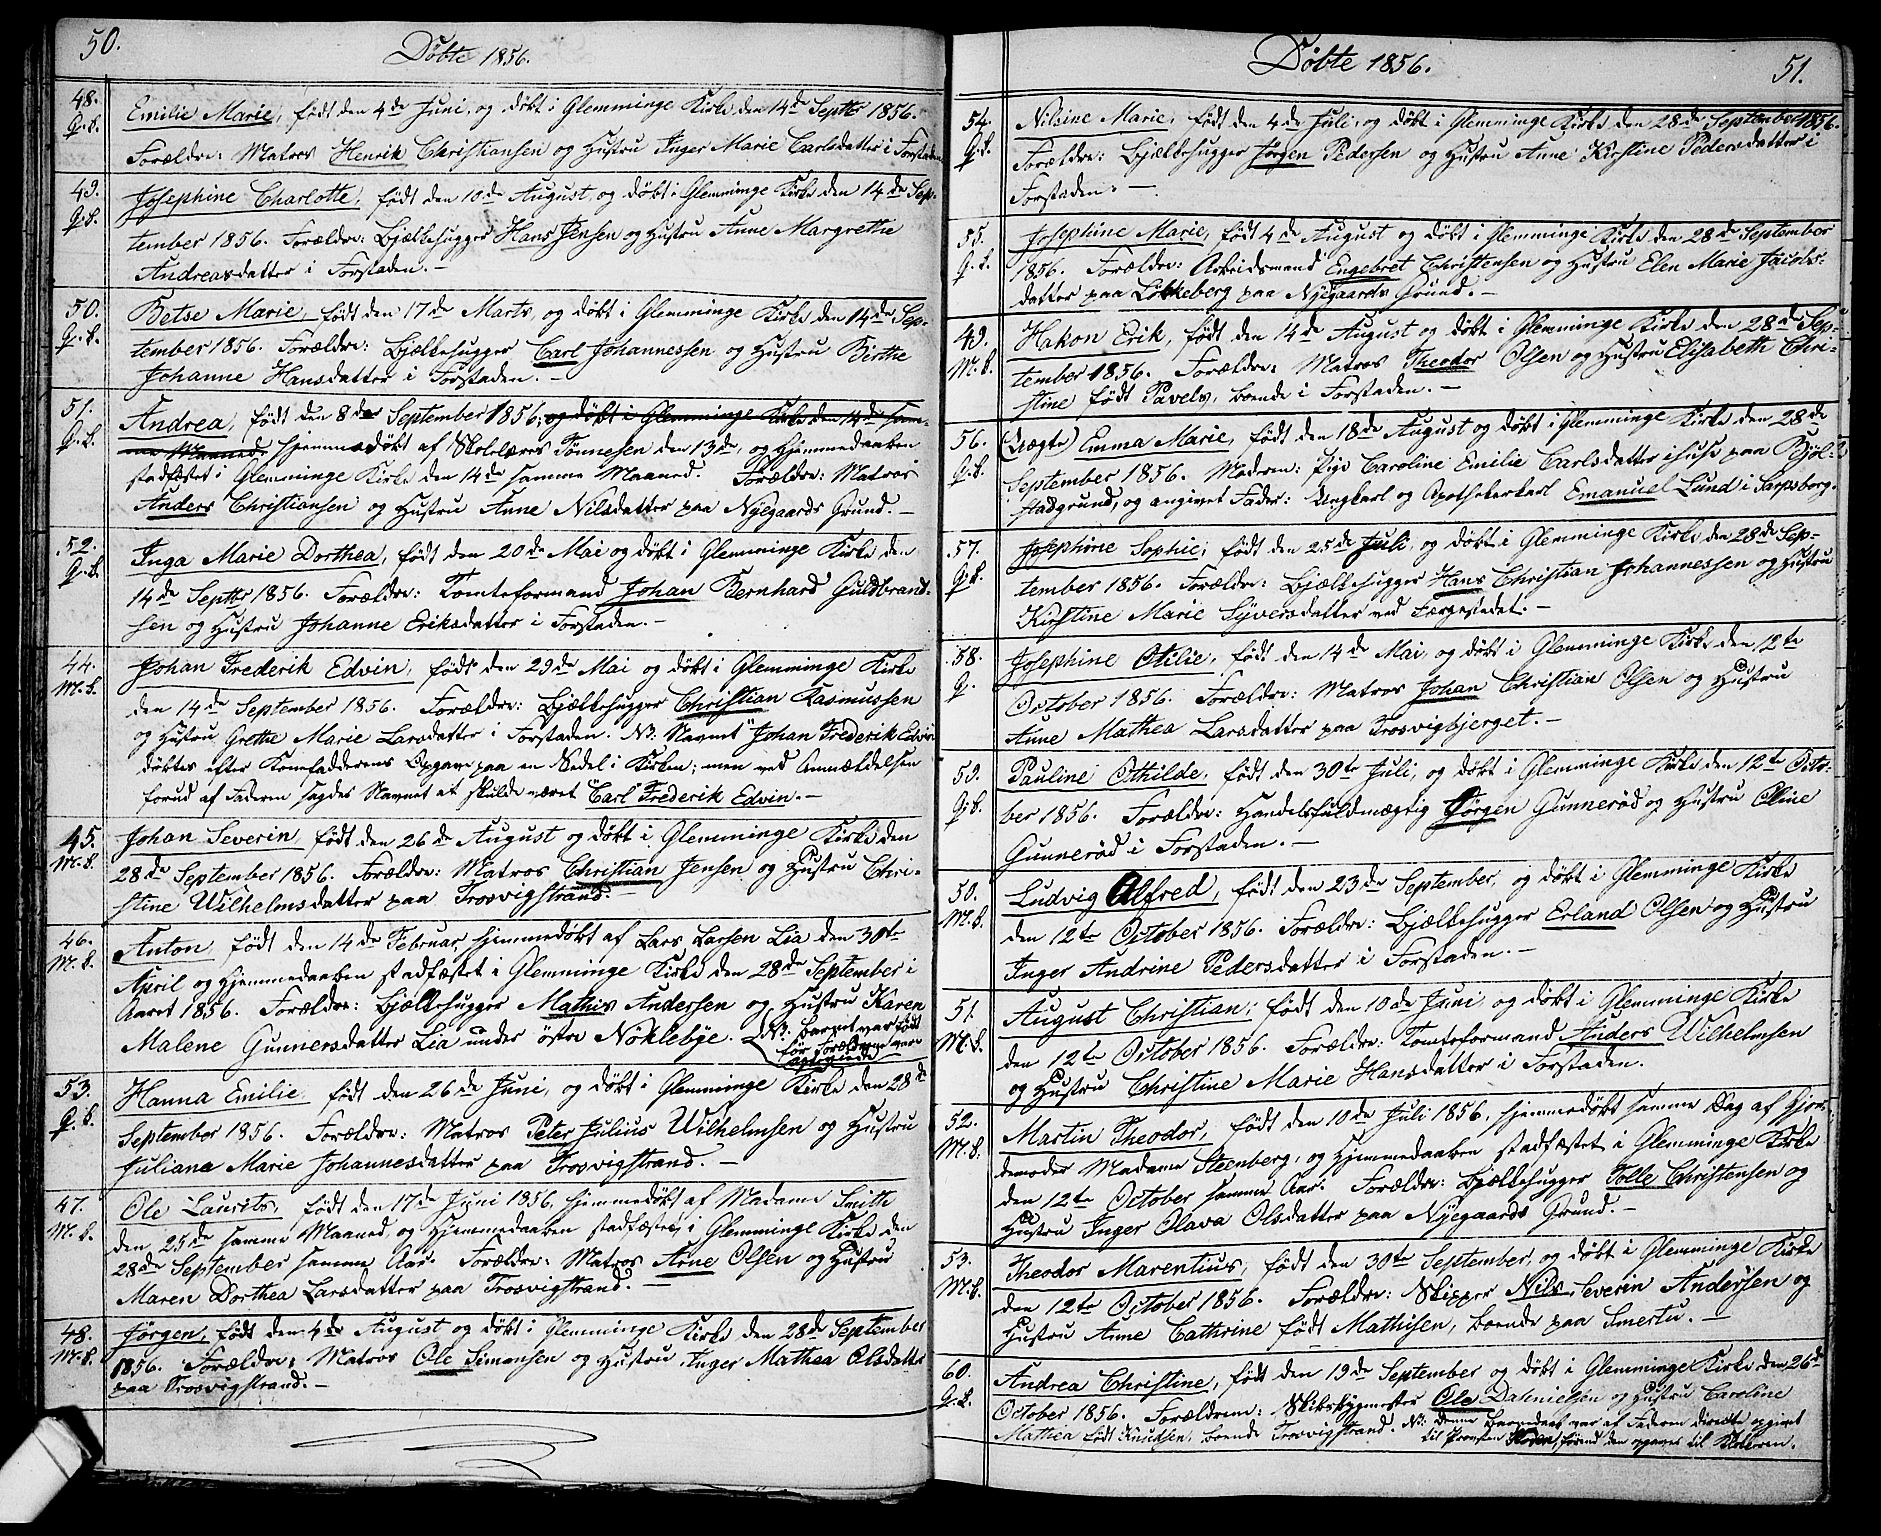 50.
Döbte 1856.
48. Emilie Marie, født den 4de Juni, og døbt i Glemminge Kirke den 14de Septbr 1856.
G.B. Forældre: Matros Henrik Christiansen og Hustru Inger Marie Carlsdatter i Forstaden
49. Josephine Charlotte, født den 10de August, og døbt i Glemminge Kirke den 14de Sep-
G.B. tember 1856. Forældre: Bjælkehugger Hans Jensen og Hustru Anne Margrethe
Andreasdatter i Forstaden.-
50. Betse Marie, født den 17de Marts, og døbt i Glemminge Kirke den 14de Sep-
G.B. tember 1856. Forældre: Bjælkehugger Carl Johannessen og Hustru Birthe
Johanne Hansdatter i Forstaden.-
51. Andrea, født den 8de September 1856, og døbt i Glemminge Kirke den 14de sam-
G.B. me Maaned. hjemmedøbt af Skolelærer Tønnesen den 13de, og Hjemmedaaben
stadfæstet i Glemminge Kirke den 14de samme Maaned. Forældre: Matros
Anders Christiansen og Hustru Anne Nilsdatter paa Nyegaards Grund.-
52. Inga Marie Dorthea, født den 20de Mai og døbt i Glemminge Kirke den
G.B. 14de Septbr 1856. Forældre: Tomteformand Johan Bernhard Guldbrand-
sen og Hustru Johanne Eriksdatter i Forstaden.-
44. Johan Frederik Edvin, født den 29de Mai og døbt i Glemminge Kirke
M.B. den 14de September 1856. Forældre: Bjælkehugger Christian Rasmussen
og Hustru Grethe Marie Larsdatter i Forstaden. NB. Navnet "Johan Frederik Edvin
døbtes efter Konefadderens Opgave paa en Sedel i Kirken; men ved Anmældelsen
forud af Faderen sagdes Navnet at skulde været "Carl Frederik Edvin.-
45. Johan Severin, født den 26de August og døbt i Glemminge Kirke den
M.B. 28de September 1856. Forældre: Matros Christian Jensen og Hustru Chri-
stine Wilhelmsdatter paa Trosvigstrand.-
46. Anton, født den 14de Februar, hjemmedøbt af Lars Larsen Lia den 30te
M.B. April og Hjemmedaaben stadfæstet i Glemminge Kirke den 28de September i
Aaret 1856. Forældre: Bjælkehugger Mathis Andersen og Hustru Karen
Malene Gunnersdatter Lia under östre Nöklebye. NB: Barnet var født
før Forældrene vare
ægteviede
53. Hanna Emilie, født den 26de Juni, og døbt i Glemminge Kirke den 28de
G.B. September 1856. Forældre: Matros Peter Julius Wilhelmsen og Hustru
Juliana Marie Johannesdatter paa Trosvigstrand.-
47. Ole Laurits, født den 17de Juni 1856, hjemmedøbt af Madame Smith
M.B. den 25de samme Maaned, og Hjemmedaaben stadfæstet i Glemminge Kirke den
28de September samme Aar. Forældre: Matros Arne Olsen og Hustru
Maren Dorthea Larsdatter paa Trosvigstrand.-
48. Jörgen, født den 4de August og døbt i Glemminge Kirke den 28de September
M.B. 1856. Forældre: Matros Ole Simonsen og Hustru Inger Mathea Olsdatter
paa Trosvigstrand.-
Döbte 1856.
51.
54. Nilsine Marie, født den 4de Juli, og døbt i Glemminge Kirke den 28de September 1856.
G.B. Forældre: Bjælkehugger Jörgen Pedersen og Hustru Anne Kirstine Pedersdatter i
Forstaden.-
55. Josephine Marie, født 4de August og døbt i Glemminge Kirke den 28de September
G.B. 1856. Forældre: Arbeidsmand Engebret Christensen og Hustru Elen Marie Jacobs-
datter paa Lökkeberg paa Nyegaards Grund.-
49. Hakon Erik, født den 14de August og døbt i Glemminge Kirke den 28de Sep-
M.B. tember 1856. Forældre: Matros Theodor Olsen og Hustru Elisabeth Chri-
stine født Pavels, boende i Forstaden.-
56. (Uægte) Emma Marie, født den 18de August og døbt i Glemminge Kirke den 28de
G.B. September 1856. Moderen: Pige Caroline Emilie Carlsdatter ihuse paa Bjöl-
stadgrund, og angivet Fader: Ungkarl og Apothekerkarl Emanuel Lund i Sarpsborg.
57. Josephine Sophie, født den 25de Juli, og døbt i Glemminge Kirke den 28de Sep-
G.B. tember 1856. Forældre: Bjælkehugger Hans Christian Johannessen og Hustru
Kirstine Marie Syversdatter ved Færgestedet.-
58. Josephine Otilie, født den 14de Mai, og døbt i Glemminge Kirke den 12te
G. October 1856. Forældre: Matros Johan Christian Olsen og Hustru
Anne Mathea Larsdatter paa Trosvigbjerget.-
59. Pauline Othilde, født den 30te Juli, og døbt i Glemminge Kirke den 12te Octo-
G.B. ber 1856. Forældre: Handelsfuldmægtig Jörgen Gunneröd og Hustru Oline
Gunneröd i Forstaden.-
50. Ludvig Alfred, født den 23de September, og døbt i Glemminge Kirke
M.B. den 12te October 1856. Forældre: Bjælkehugger Erland Olsen og Hustru
Inger Andrine Pedersdatter i Forstaden.-
51. August Christian, født den 10de Juni, og døbt i Glemminge Kirke
M.B. den 12te October 1856. Forældre: Tomteformand Anders Wilhelmsen
og Hustru Christine Marie Hansdatter i Forstaden.
52. Martin Theodor, født den 10de Juli 1856, hjemmedøbt samme Dag af Gjor-
M.B. demoder Madame Steenberg, og Hjemmedaaben stadfæstet i Glemminge Kirke
den 12te October samme Aar. Forældre: Bjælkehugger Tolle Christensen og
Hustru Inger Olava Olsdatter paa Nyegaards Grund.-
53. Theodor Marentius, født den 30te September, og døbt i Glemminge Kirke
M.B. den 12te October 1856. Forældre: Skipper Nils Severin Andersen og
Hustru Anne Cathrine født Mathisen, boende paa Smertu.-
60. Andrea Christine, født den 19de September og døbt i Glemminge Kirke den 26de
G.B. October 1856. Forældrene: Skibsbygmester Ole Danielsen og Hustru Caroline
Mathea født Knudsen, boende Trosvigstrand. NB: denne Barnedaab var af Faderen direkte opgivet
til Provsten, forend den opgaves til Klokkeren.